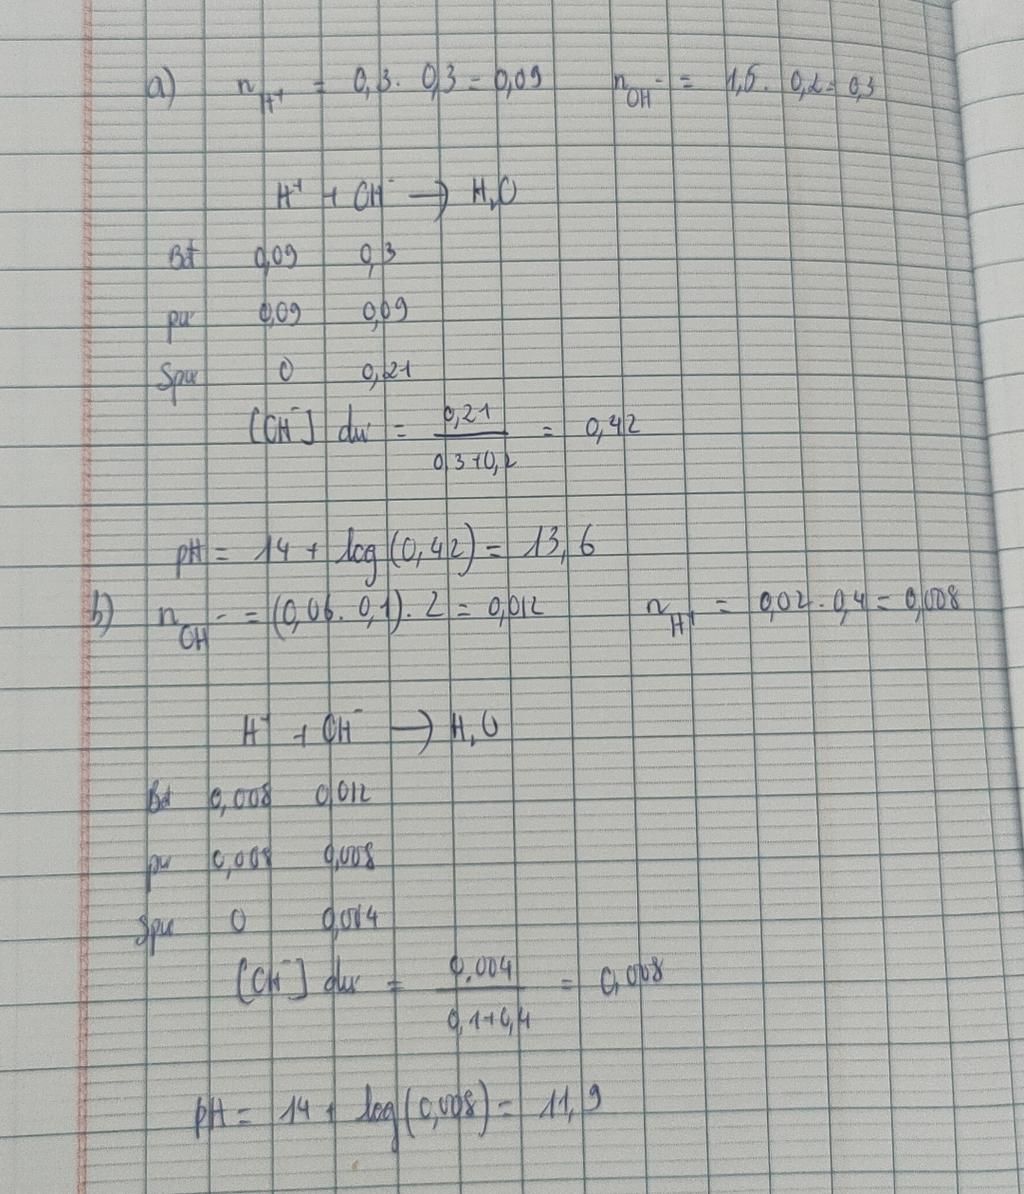 a) n_H⁺ = 0,3 . 0,3 = 0,09 n_OH⁻ = 1,5 . 0,2 = 0,3
H⁺ + OH⁻ → H₂O
Bđ 0,09 0,3
pư 0,09 0,09
Spư 0 0,21
[OH⁻] dư = 0,21 / 0,3+0,2 = 0,42
pH = 14 + log(0,42) = 13,6
b) n_OH⁻ = (0,06 . 0,1) . 2 = 0,012 n_H⁺ = 0,02 . 0,4 = 0,008
H⁺ + OH⁻ → H₂O
Bđ 0,008 0,012
pư 0,008 0,008
Spư 0 0,004
[OH⁻] dư = 0.004 / 0,1+0,4 = 0,008
pH = 14 + log(0,008) = 11,9